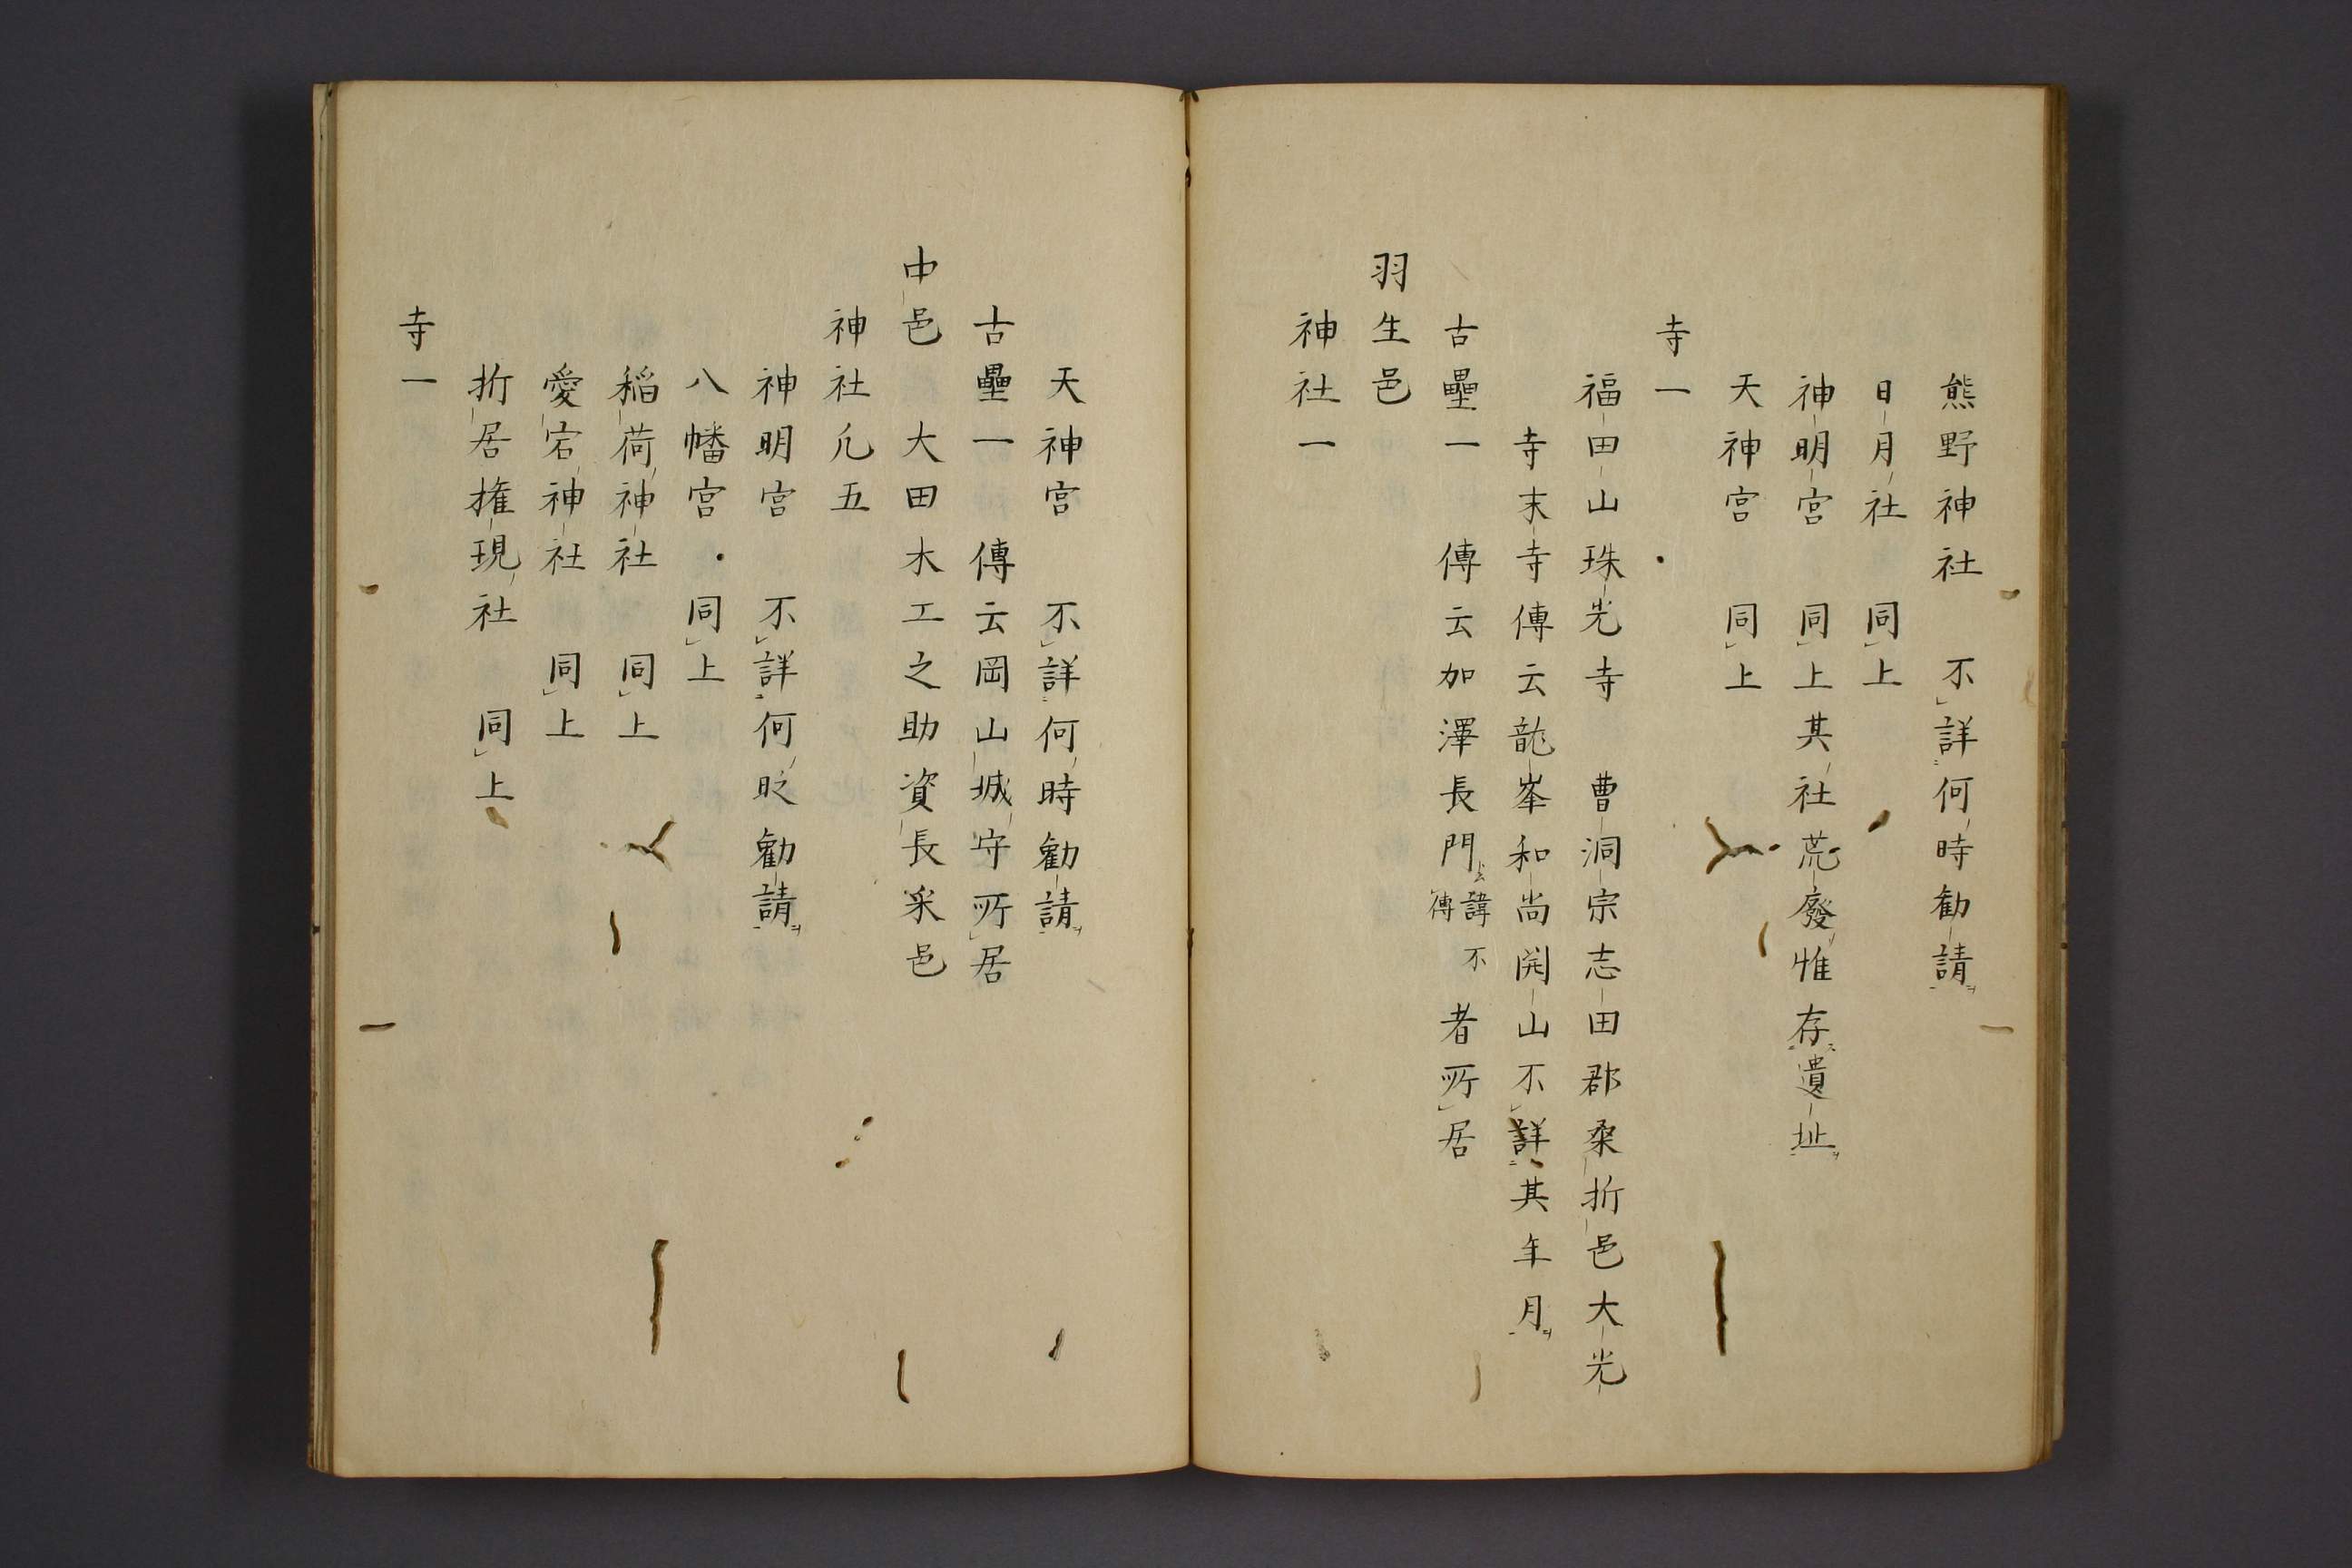 熊野神社 不詳何時勧請
日月社 同上
神明宮 同上其社荒廢惟存遺址
天神宮 同上
寺一
福田山珠光寺 曹洞宗志田郡桑折邑大光
寺末寺傳云龍峯和尚開山不詳其年月
古壘一 傳云加澤長門諱不傳者所居
羽生邑
神社一
天神宮 不詳何時勧請
古壘一 傳云岡山城守所居
中邑 大田木工之助資長采邑
神社凡五
神明宮 不詳何時勧請
八幡宮 同上
稲荷神社 同上
愛宕神社 同上
折居権現社 同上
寺一